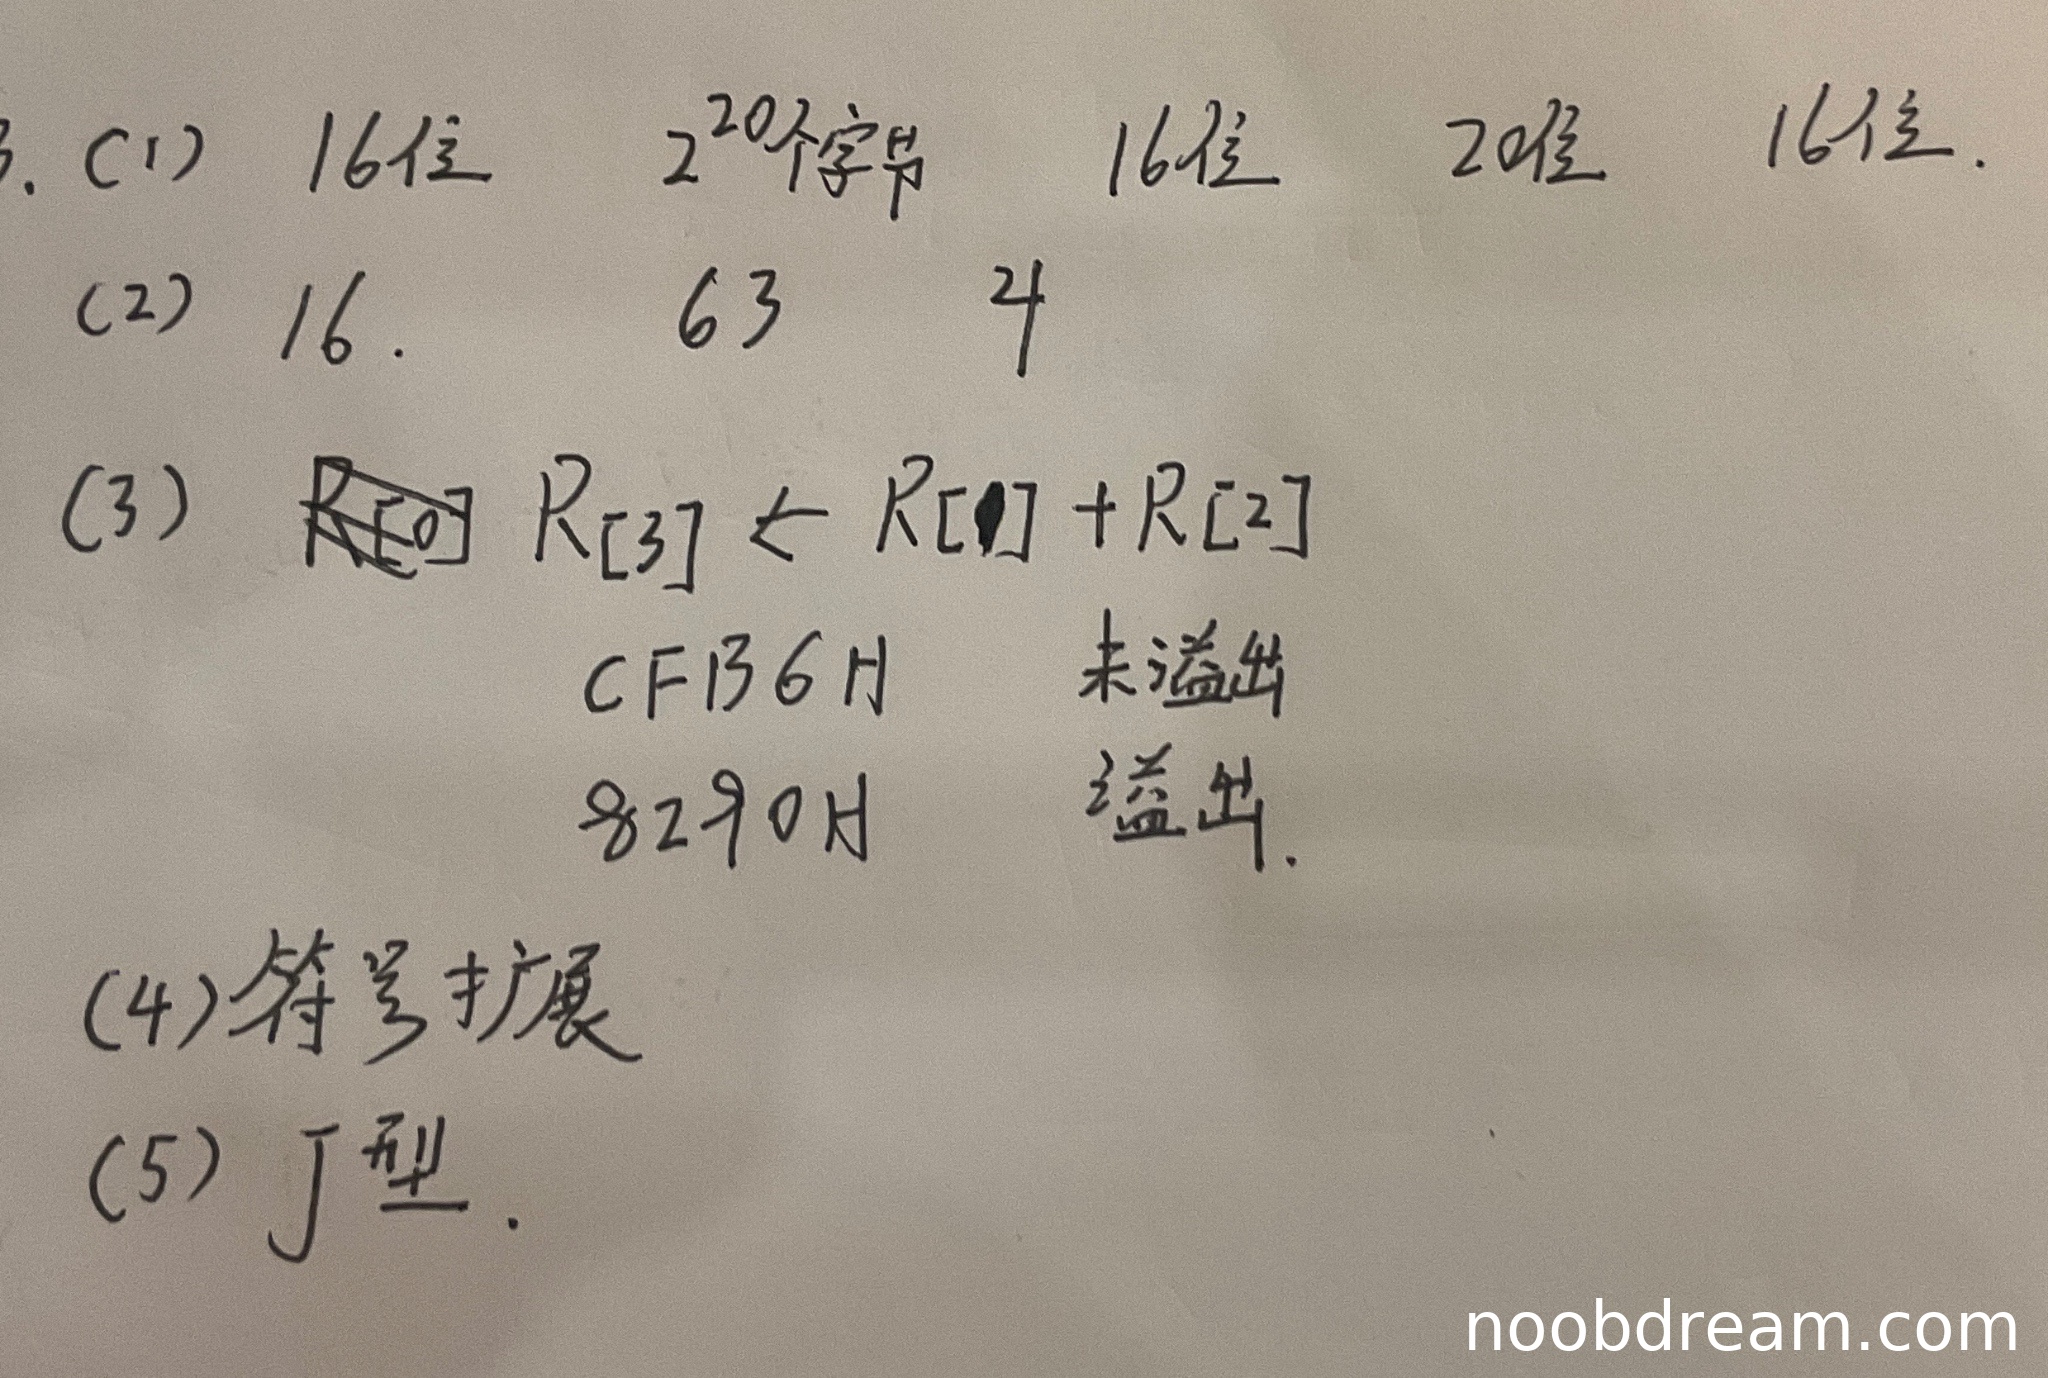 3. (1) 16位 2^20个字节 16位 20位 16位.
(2) 16. 63 4
(3) R[3] ← R[1] + R[2]
CFB6H 未溢出
8290H 溢出.
(4) 符号扩展
(5) J型.
noobdream.com